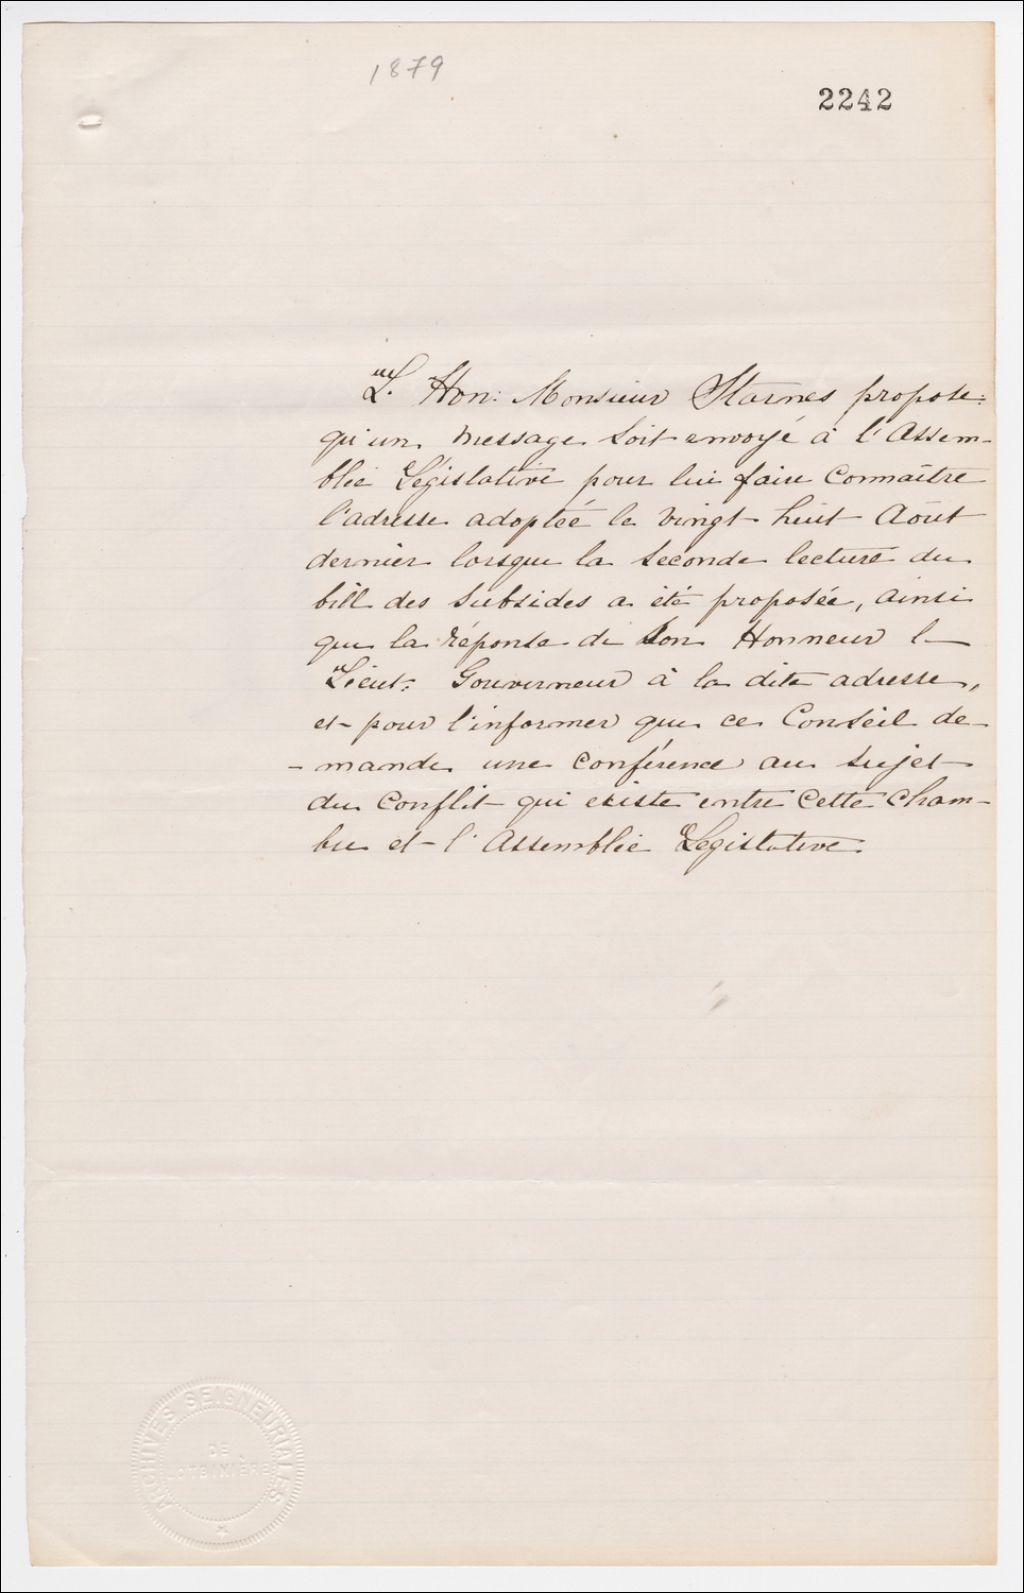 1879
2242
"L. Hon: Monsieur Starnes propose:
qu'un message soit envoyé à l'Assem-
blée Législative pour lui faire connaître
l'adresse adoptée le vingt huit Août
dernier lorsque la seconde lecture du
bill des subsides a été proposée, ainsi
que la réponse de Son Honneur le
Lieut: Gouverneur à la dite adresse,
et pour l'informer que ce Conseil de-
-mande une conférence au sujet
du conflit qui existe entre cette cham-
bre et l'Assemblée Législative.
ARCHIVES SEIGNEURIALES
DE
LOTBINIÈRE